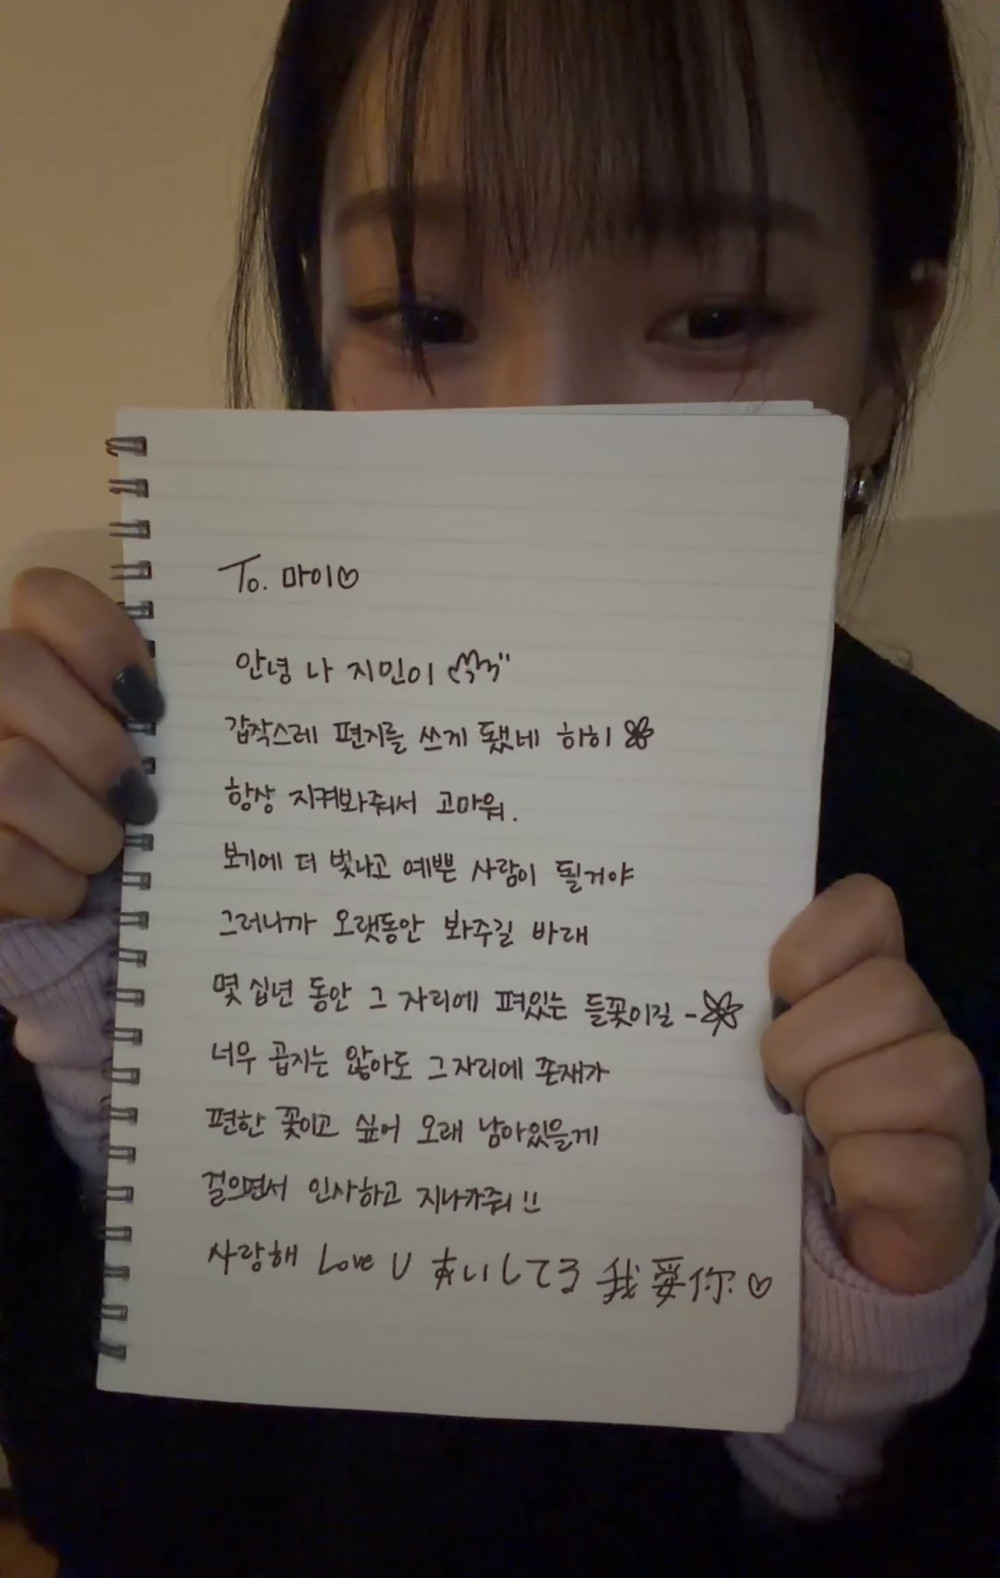 To. 마이♡
안녕 나 지민이
갑작스레 편지를 쓰게 됐네 하히
항상 지켜봐줘서 고마워.
보기에 더 빛나고 예쁜 사람이 될거야
그러니까 오랫동안 봐주길 바래
몇 십년 동안 그 자리에 펴있는 들꽃이길 -
너무 곱지는 않아도 그 자리에 존재가
편한 꽃이고 싶어 오래 남아있을게
걸으면서 인사하고 지나가줘!!
사랑해 Love U あいしてる 我爱你 ♡